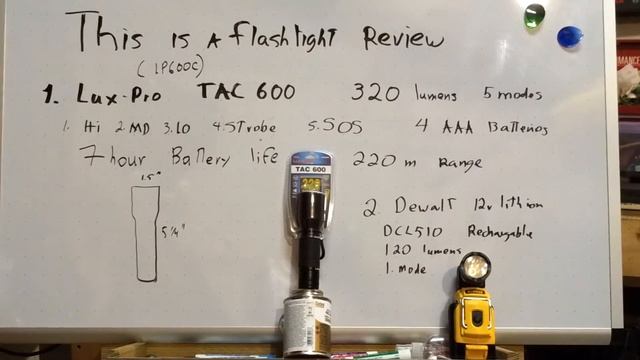 This is A flashlight Review
(LP600C)
1. Lux-Pro TAC 600 320 lumens 5 modes
1. Hi 2. MD 3. LO 4. STrobe 5. SOS 4 AAA Batteries
7 hour Battery life 220 m Range
1.5"
5 1/4"
TAC 600
2. Dewalt 12v lithion
DCL510 Rechargable
120 lumens
1. mode